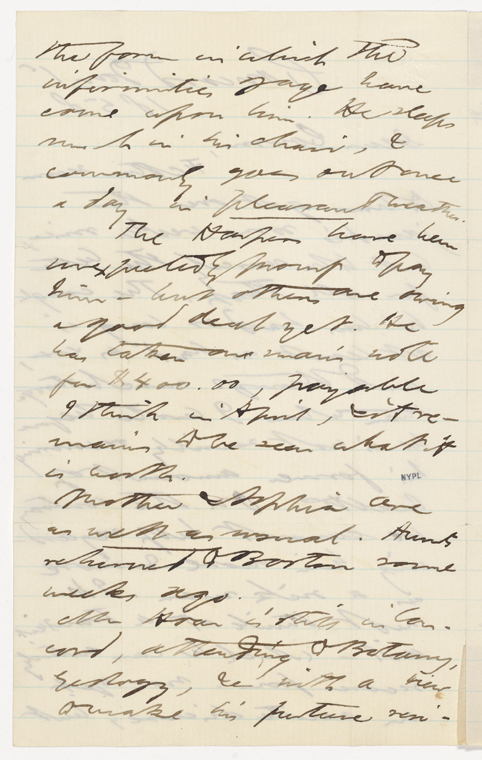 the form in which the
infirmities of age have
come upon him. He sleeps
much in his chair, &
commonly goes out once
a day in pleasant weather.
The Harpers have been
unexpectedly prompt to pay
him – but others are owing
a good deal yet. He
has taken one man's note
for $400.00, payable
I think in April, & it re-
mains to be seen what it
is worth.
NYPL
Mother & Sophia are
as well as usual. Aunt
returned to Boston some
weeks ago.
Mr Hoar is still in Con-
cord, attending to Botany,
Geology, &c with a view
to make his future resi-